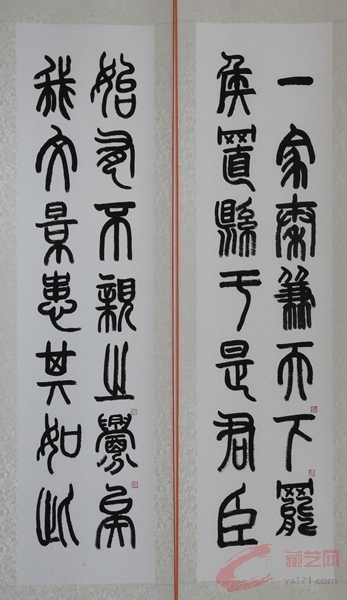 一家秦兼天下罷
侯置縣于是君臣
始有不親之釁矣
我文景患其如此
藏艺网
ys121.com